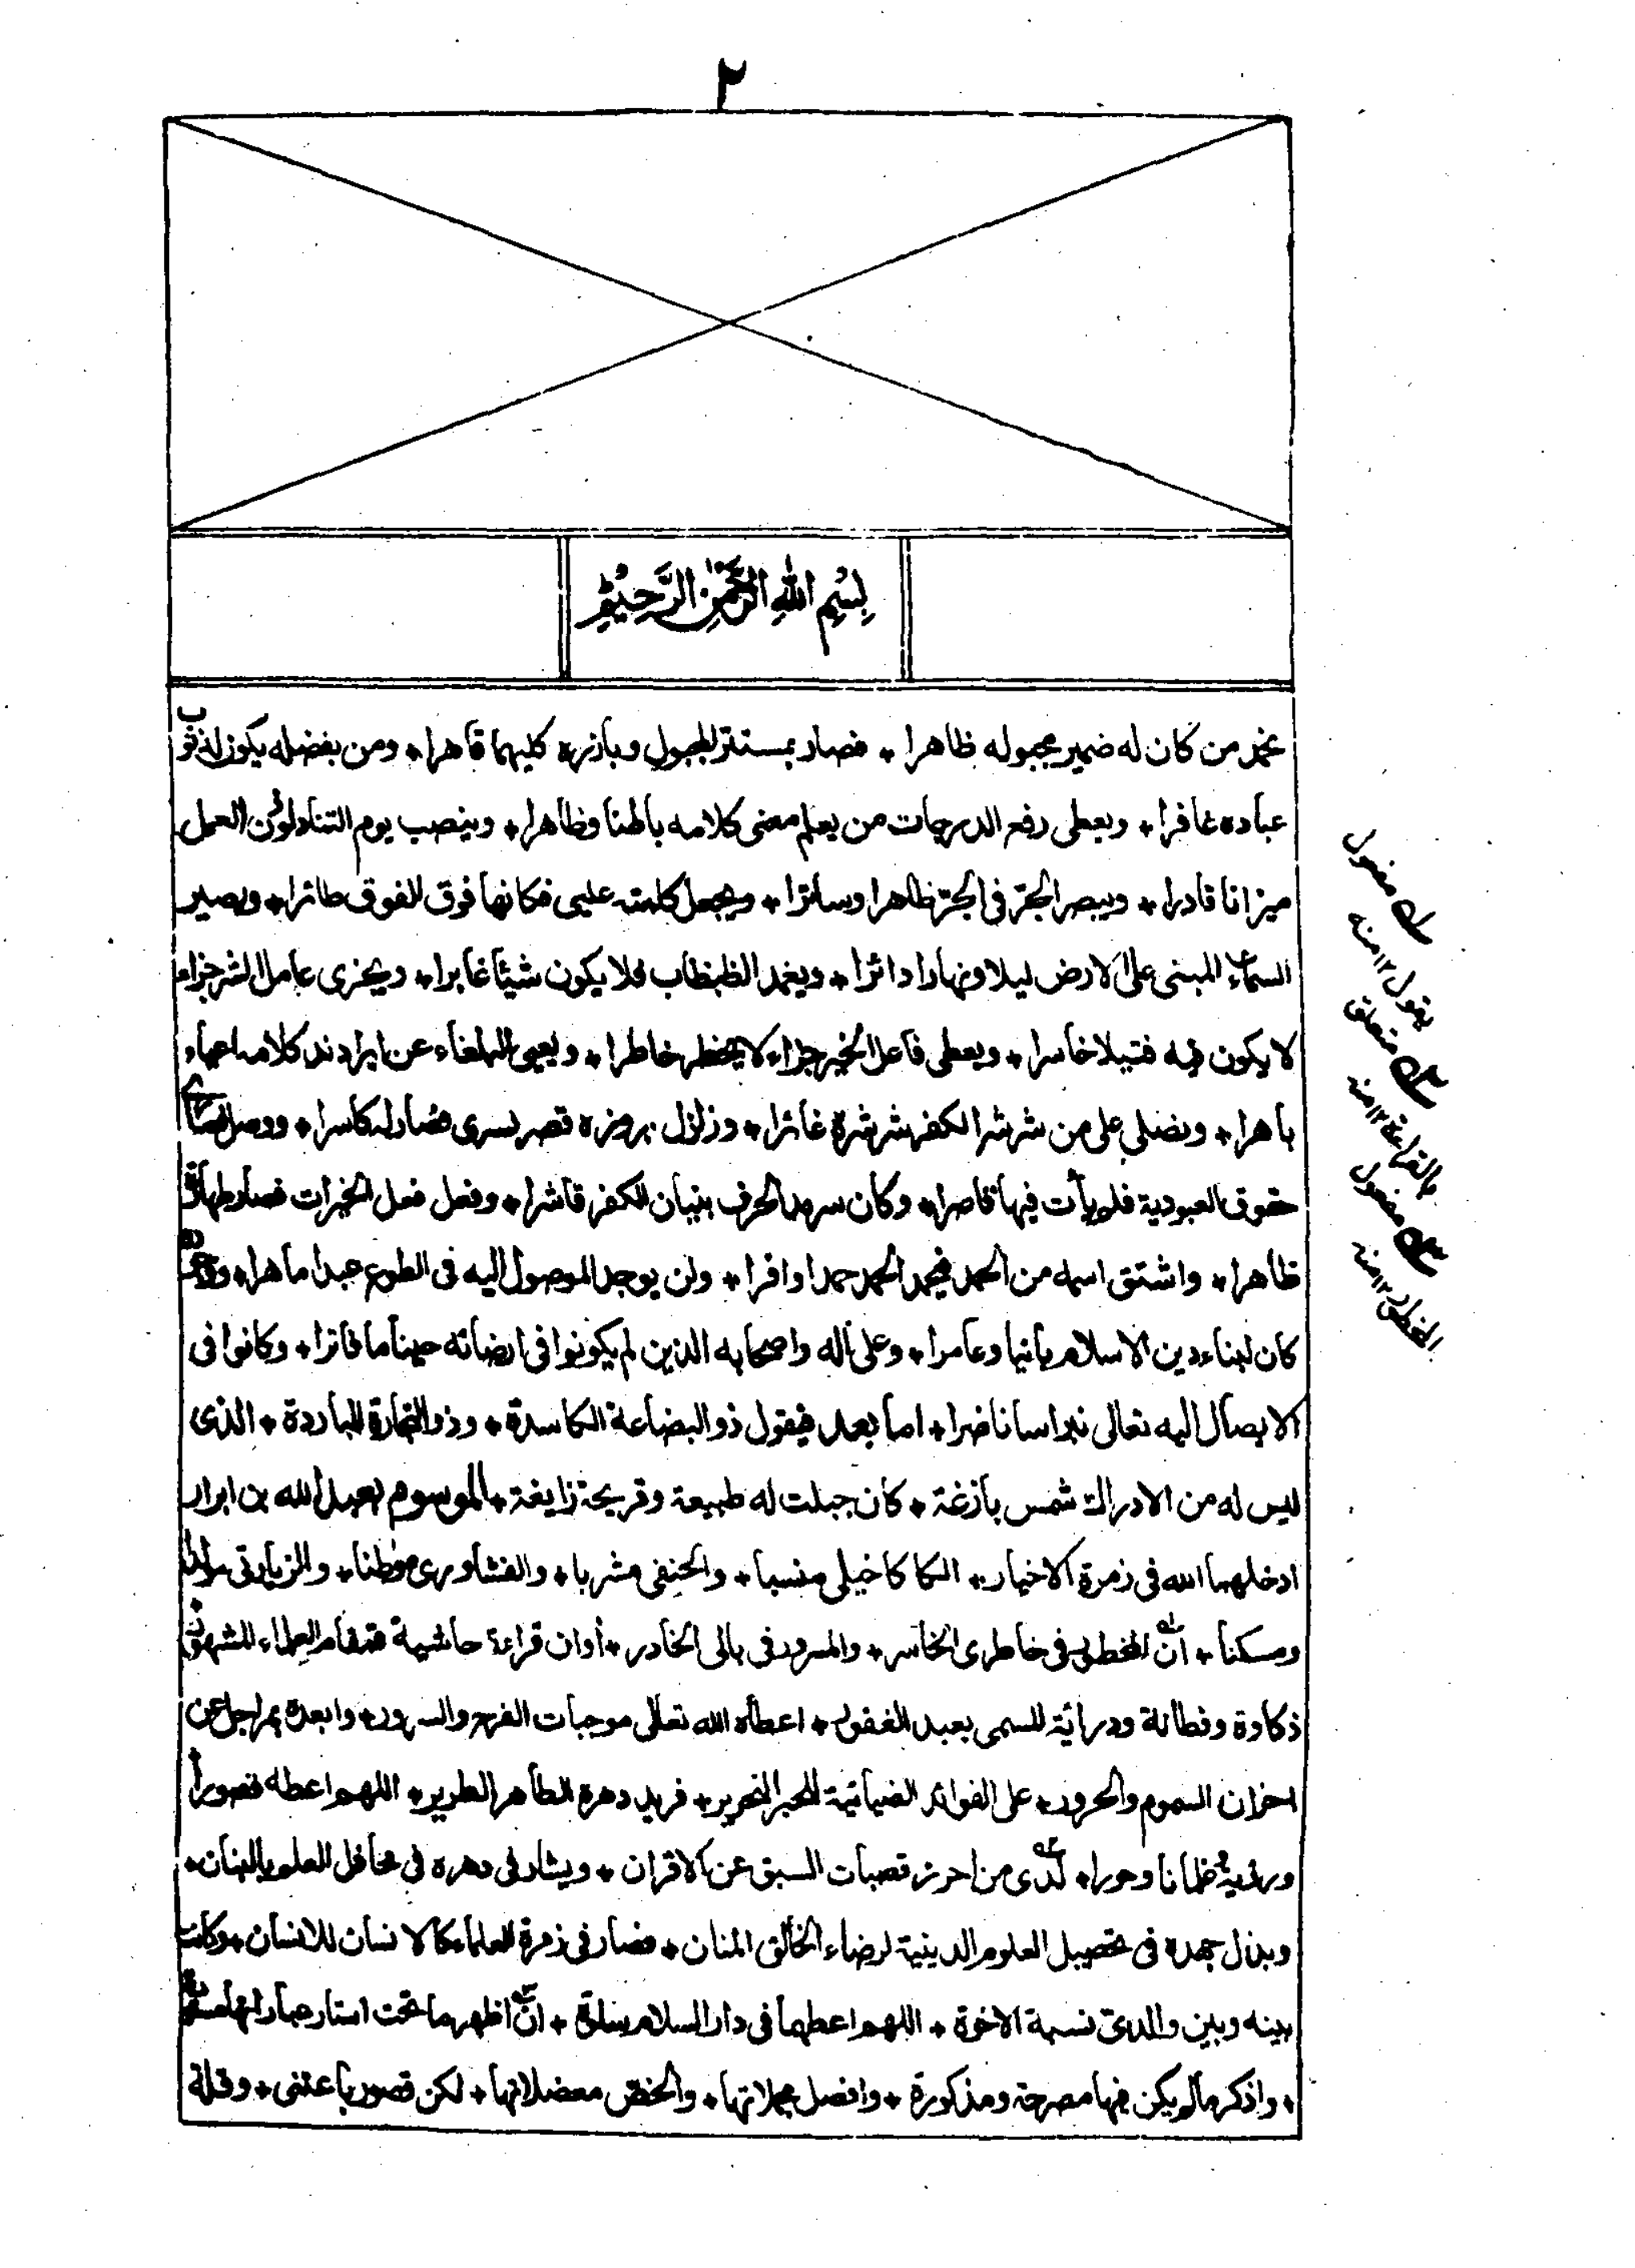 ٢
بِسْمِ اللهِ الرَّحْمٰنِ الرَّحِيْمِ
نحمد من كان له ضمير مجهوله ظاهرا * فصار بمستتر المجهول وبارزه كليهما قاهرا * ومن بفضله يكون لذنوب
عباده غافرا * ويعطى رفع الدرجات من يعلم معنى كلامه باطنا وظاهرا * وينصب يوم التناد لوزن العمل
ميزانا قادرا * ويبصر الجر فى الجر ظاهرا وساترا * ويجعل كلمته عليى فكانها فوق الفوق طائرا * ويصير
السماء المبنى على الارض ليلا ونهارا دائرا * ويغمد الظبظاب فلا يكون شيئا غابرا * ويجزى عامل الشر جزاء
لا يكون فيه فتيلا خاسرا * ويعطى فاعل الخير جزاء لا يخطر خاطرا * ويعيى البلغاء عن ايراد ند كلامه اعياء
باهرا * ونصلى على من شرشر الكفر شرشرة غائرا * وزلزل بروزه قصر كسرى فصار له كاسرا * ووصل
حقوق العبودية فلم يأت فيها قاصرا * وكان سرمد الحرف بنيان الكفر قاشرا * وفعل فعل الخيرات فصار طهارة
ظاهرا * واشتق اسمه من الحمد فيحمد الحمد حمدا وافرا * ولن يوجد الموصول اليه فى الطوع عبدا ماهرا *
كان لبناء دين الاسلام بانيا وعامرا * وعلى آله واصحابه الذين لم يكونوا فى ارضائه حينا ما فاترا * وكانوا فى
الايصال اليه تعالى نبراسا ناضرا * اما بعد فيقول ذو البضاعة الكاسدة * وذو التجارة الباردة * الذى
ليس له من الادراك شمس بازغة * كان جبلت له طبيعة وقريحة زايغة * الموسوم بعبد الله بن ابرار
ادخلهما الله فى زمرة الاخيار * الكاكاخيلى منسبا * والحنفى مشربا * والفشاورى موطنا * والزيارتى مولدا
ومسكنا * انّ المخطور فى خاطرى الخاسر * والمسرور فى بالى الخادر * أوان قراءة حاشية مقدام العلماء المشهور
ذكاوة وفطانة ودراية المسمى بعبد الغفور * اعطاه الله تعالى موجبات الفرح والسرور * وابعده بمراحل عن
احزان السموم والحرور * على الفوائد الضيائية للحبر النحرير * فريد دهره الطاهر الطرير * اللهم اعطه قصورا
ورؤية غلمانا وحورا * لدى من احرز قصبات السبق عن الاقران * ويشار فى دهره فى محافل العلم بالبنان *
وبذل جهده فى تحصيل العلوم الدينية لرضاء الخالق المنان * فصار فى زمرة العلماء كالانسان للانسان * وكانت
بينه وبين والدى نسبة الاخوة * اللهم اعطهما فى دار السلام سلوة * انّ اظهر ما تحت استار عباراتها
* واذكر ما لم يكن فيها مصرحة ومذكورة * وافصل مجملاتها * والخص معضلاتها * لكن قصور باعتنى * وقلة
له مفعول
يقول ١٢ منه
٢ه متعلق
بالقراءة ١٢ منه
٣ه مفعول
المخطور ١٢ منه